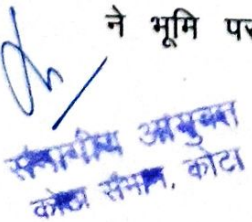 ने भूमि पर
संभागीय आयुक्त
कोटा संभाग, कोटा